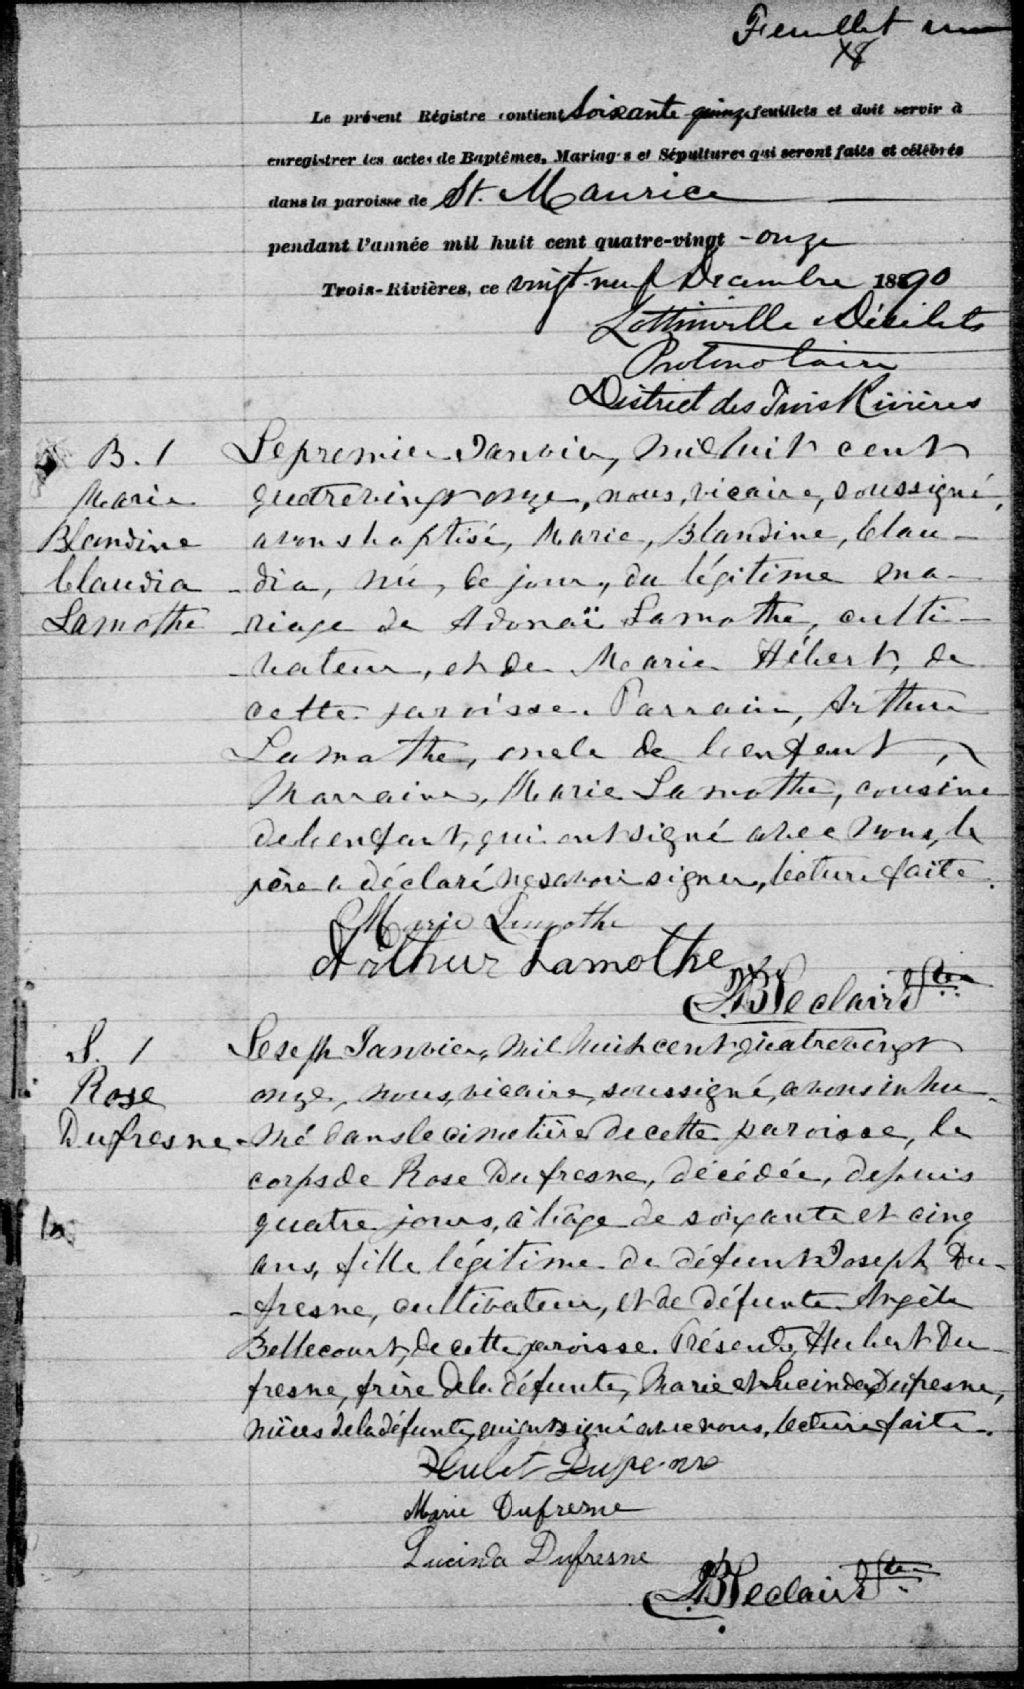 Feuillet un
Le présent Régistre contient Soixante quinze feuillets et doit servir à
enregistrer les actes de Baptêmes, Mariages et Sépultures qui seront faits et célébrés
dans la paroisse de St. Maurice
pendant l'année mil huit cent quatre-vingt -onze
Trois-Rivières, ce vingt-neuf Décembre 1890
Lottinville & Désilets
Protonotaire
District des Trois Rivières
B. 1
Marie
Blandine
Claudia
Lamothe
Le premier Janvier, mil huit cent
quatrevingt onze, nous, vicaire, soussigné,
avons baptisé, Marie, Blandine, Clau-
-dia, née, ce jour, du légitime ma-
-riage de Adonaï Lamothe, culti-
-vateur, et de Marie Hébert, de
cette paroisse. Parrain, Arthur
Lamothe, oncle de l'enfant,
Marraine, Marie Lamothe, cousine
de l'enfant, qui ont signé avec nous, le
père a déclaré ne savoir signer, lecture faite.
Marie Lamothe
Arthur Lamothe
Leclair Ptre
S. 1
Rose
Dufresne
Le sept Janvier, mil huit cent quatrevingt
onze, nous, vicaire, soussigné, avons inhu-
-mé dans le cimetière de cette paroisse, le
corps de Rose Dufresne, décédée, depuis
quatre jours, à l'âge de soixante et cinq
ans, fille légitime de défunt Joseph Du-
-fresne, cultivateur, et de défunte Angèle
Bellecourt, de cette paroisse. Présents, Hubert Du-
fresne, frère de la défunte, Marie et Lucinda Dufresne,
nièces de la défunte, qui ont signé avec nous, lecture faite.
Marie Dufresne
Lucinda Dufresne
Leclair Ptre